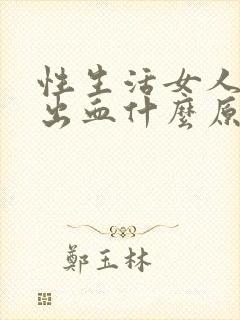 性生活女人
出血什麼原
鄭玉林